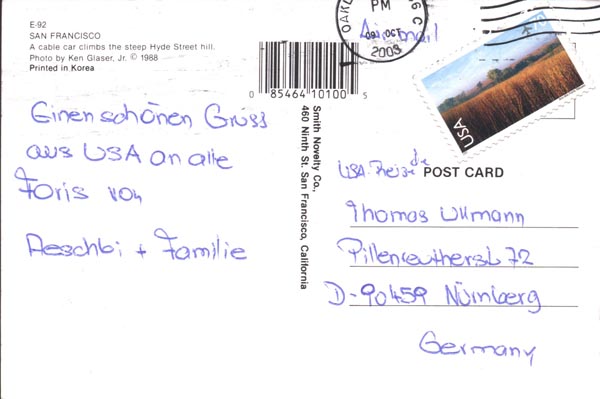 E-92
SAN FRANCISCO
A cable car climbs the steep Hyde Street hill.
Photo by Ken Glaser, Jr. © 1988
Printed in Korea
PM
09 OCT
2003
Airmail
USA
0 85464 10100 5
Smith Novelty Co.,
460 Ninth St. San Francisco, California
Einen schönen Gruss
aus USA an alle
Foris von
Aeschbi + Familie
USA-Reise.de
POST CARD
Thomas Ullmann
Pillenreutherst. 72
D-90459 Nürnberg
Germany